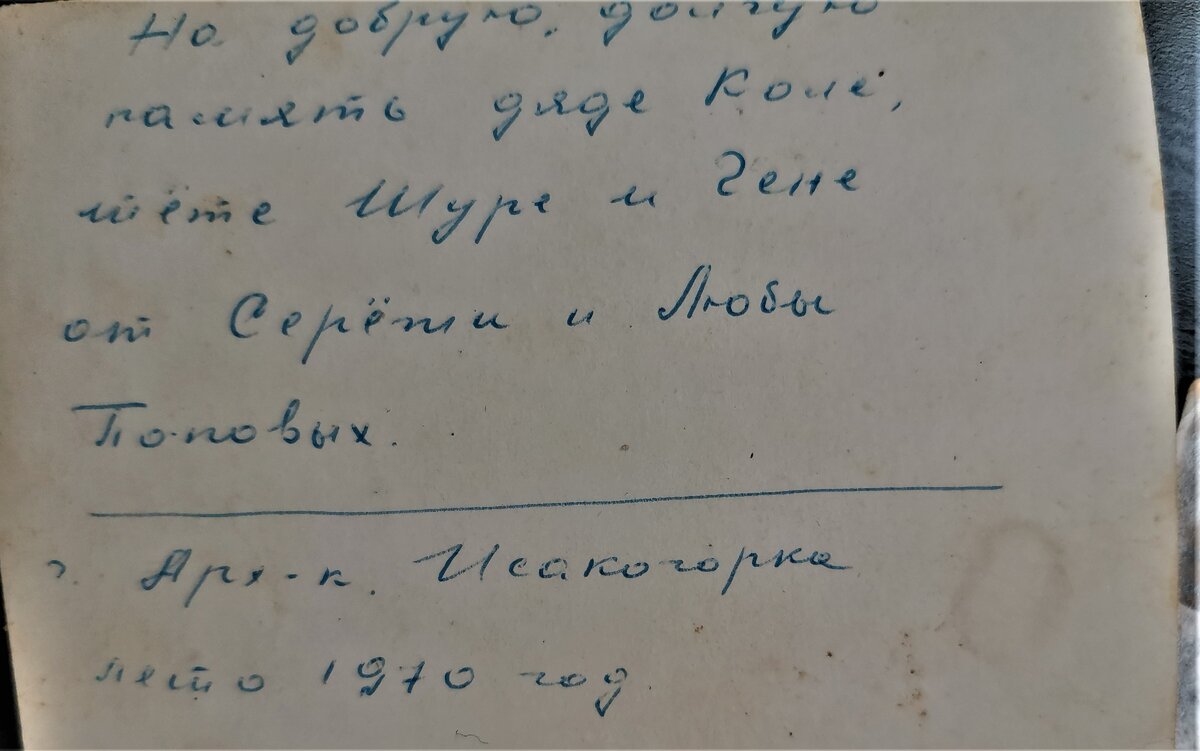 На добрую, долгую
память дяде Коле,
тёте Шуре и Гене
от Серёжи и Любы
Поповых.
г. Арх-к. Исакогорка
лето 1970 год.